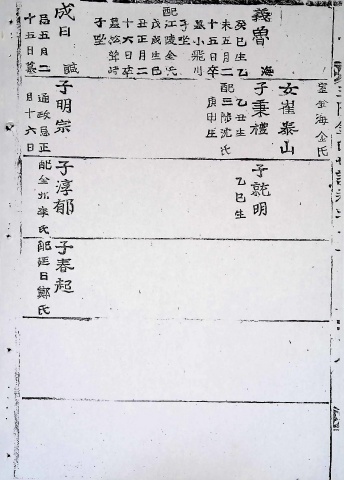 義曾 海
癸巳生乙
未五月二
十五日卒
墓小飛川
子坐
配江陵金氏
戊戌生巳
丑正月二
十六日卒
子坐
成日
忌五月二
十五日墓
金海金氏
女崔泰山
子秉禮
乙丑生
配三陟沈氏
庚申生
子明宗
通政忌正
月十六日
子就明
乙巳生
子淳郁
配全州李氏
子春起
配延日鄭氏